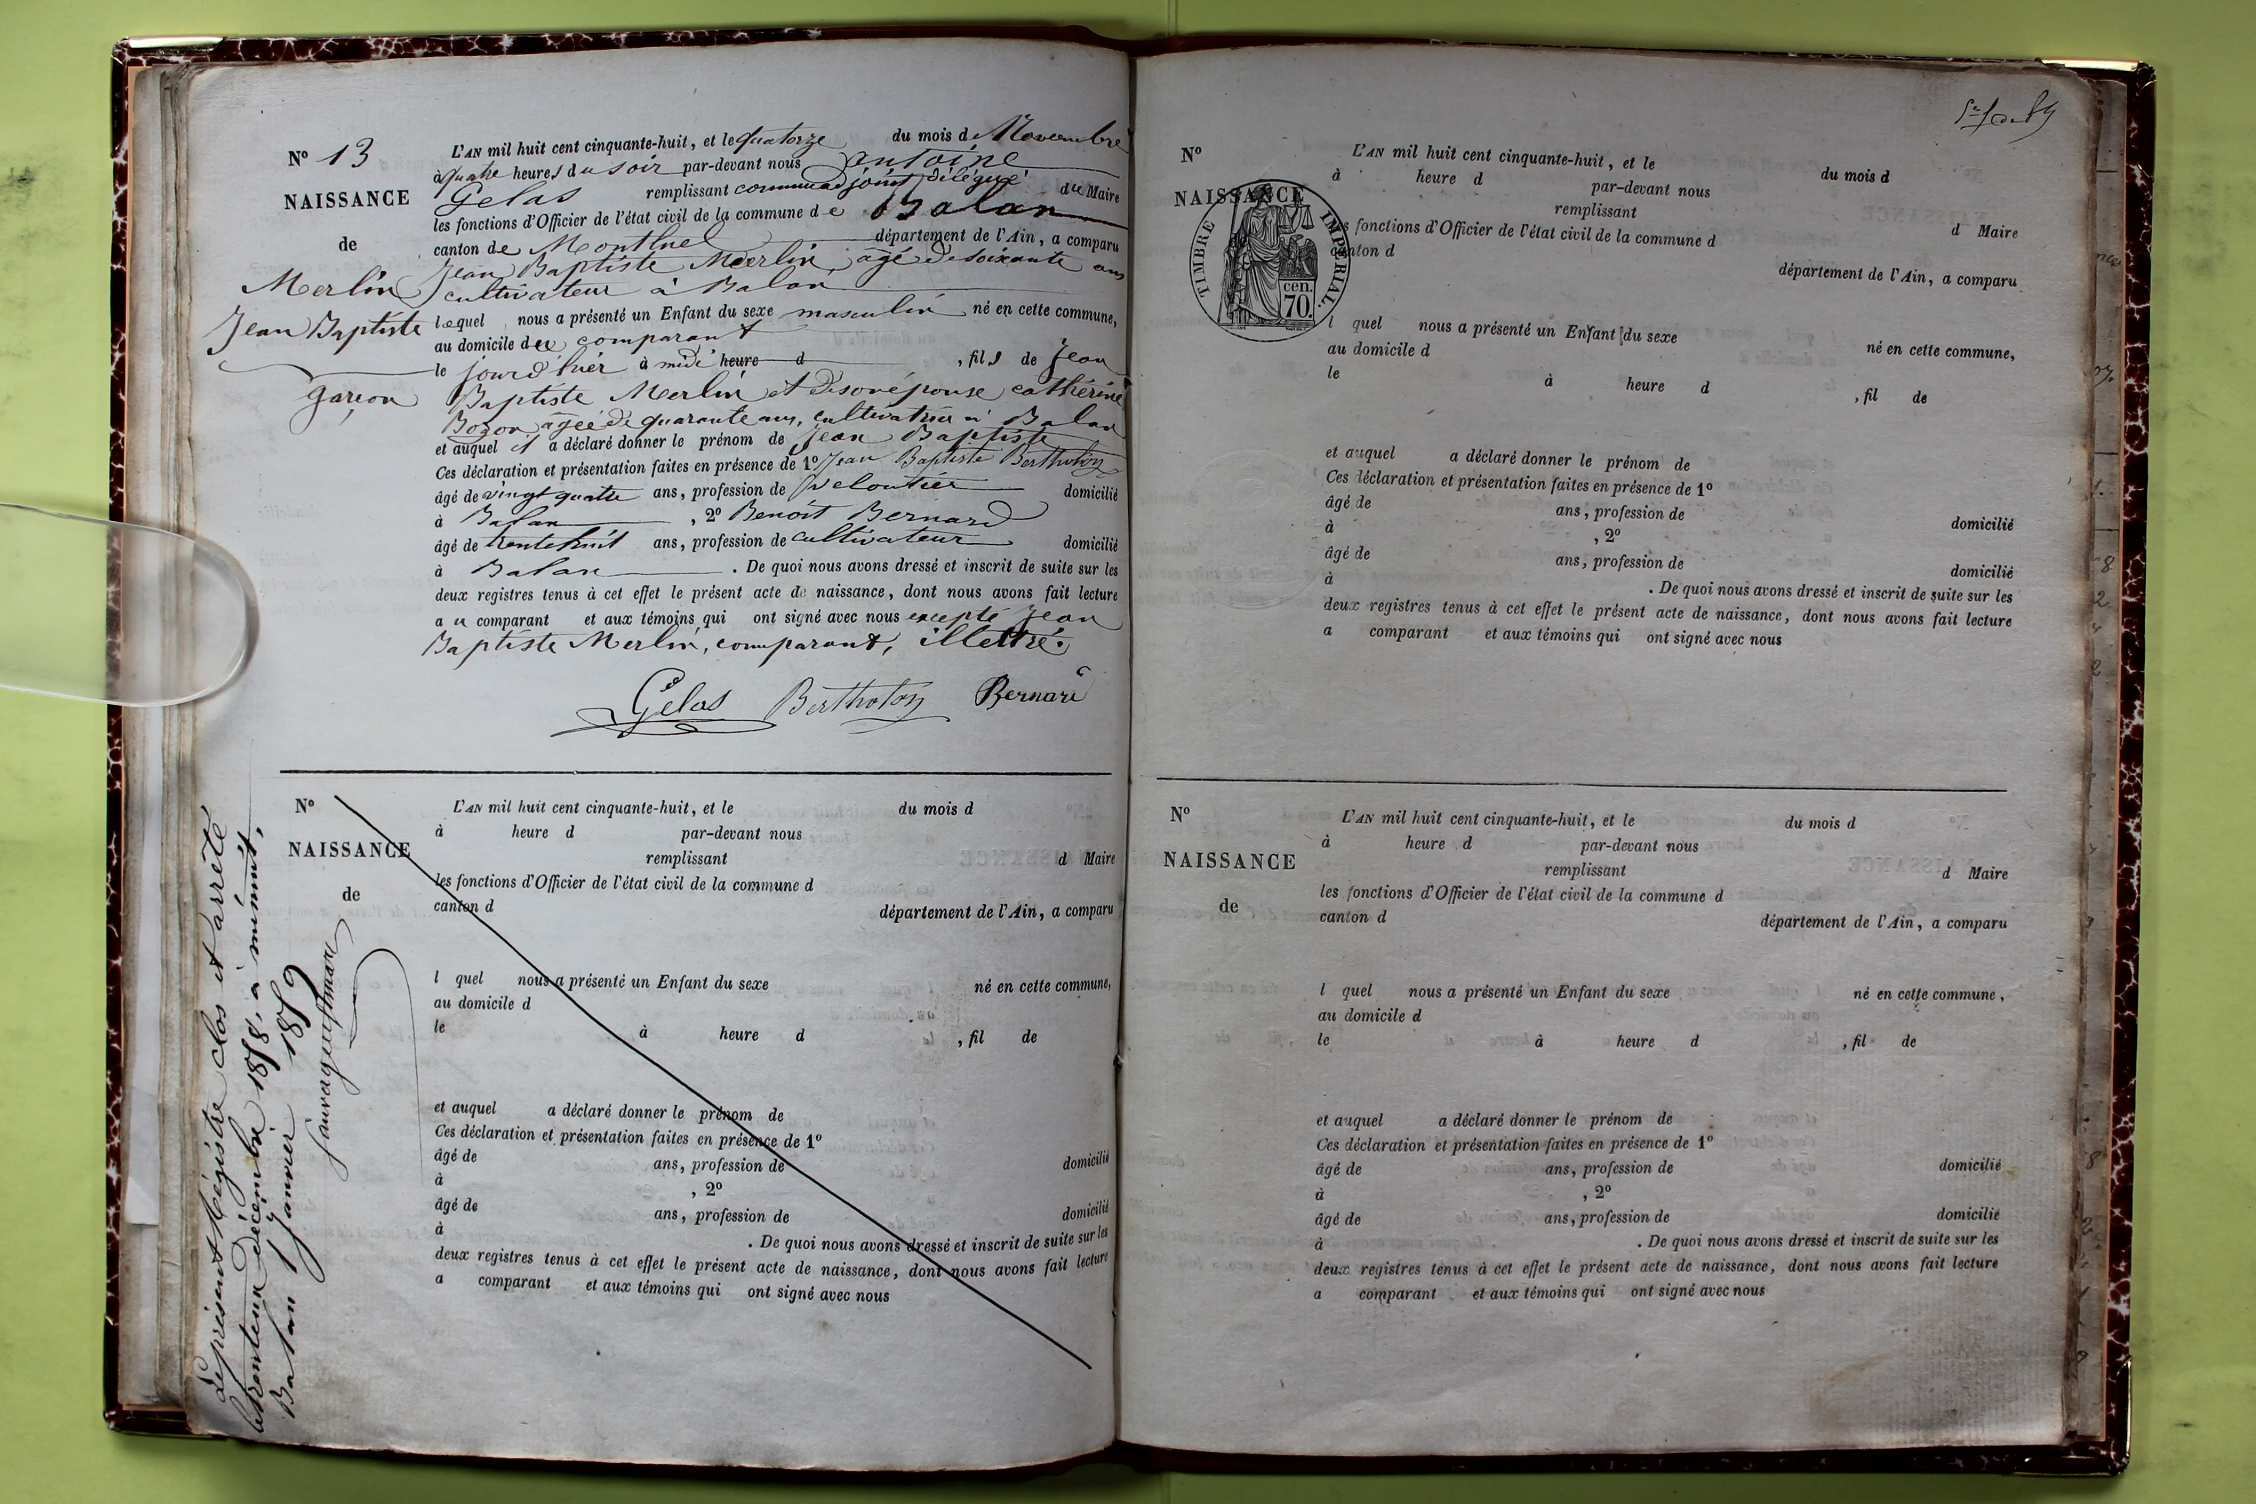 N° 13
NAISSANCE
de
Merlin
Jean Baptiste
garçon
L'AN mil huit cent cinquante-huit, et le quatorze du mois de Novembre
à quatre heures du soir par-devant nous antoine
Gelas remplissant comme adjoint délégué du Maire
les fonctions d'Officier de l'état civil de la commune de Balan
canton de Montluel département de l'Ain, a comparu
Jean Baptiste Merlin, agé de soixante ans
cultivateur à Balan
lequel nous a présenté un Enfant du sexe masculin né en cette commune,
au domicile du comparant
le jour d'hier à midi heure d , fils de Jean
Baptiste Merlin et de son épouse cathérine
Bozon agée de quarante ans, cultivatrice à Balan
et auquel il a déclaré donner le prénom de Jean Baptiste
Ces déclaration et présentation faites en présence de 1° Jean Baptiste Bertholon
âgé de vingt quatre ans, profession de veloutier domicilié
à Balan , 2° Benoît Bernard
âgé de trente huit ans, profession de cultivateur domicilié
à Balan . De quoi nous avons dressé et inscrit de suite sur les
deux registres tenus à cet effet le présent acte de naissance, dont nous avons fait lecture
au comparant et aux témoins qui ont signé avec nous excepté Jean
Baptiste Merlin, comparant, illettré.
Gelas Bertholon Bernard
N°
NAISSANCE
de
L'AN mil huit cent cinquante-huit, et le du mois d
à heure d par-devant nous
remplissant d Maire
les fonctions d'Officier de l'état civil de la commune d
canton d département de l'Ain, a comparu
l quel nous a présenté un Enfant du sexe né en cette commune,
au domicile d
le à heure d , fil de
et auquel a déclaré donner le prénom de
Ces déclaration et présentation faites en présence de 1°
âgé de ans, profession de domicilié
à , 2°
âgé de ans, profession de domicilié
à . De quoi nous avons dressé et inscrit de suite sur les
deux registres tenus à cet effet le présent acte de naissance, dont nous avons fait lecture
a comparant et aux témoins qui ont signé avec nous
Le présent Régistre clos et arrêté
le trente un décembre 1858, à minuit,
Balan 1 Janvier 1859
N°
NAISSANCE
TIMBRE IMPERIAL.
cen.
70.
L'AN mil huit cent cinquante-huit, et le du mois d
à heure d par-devant nous
remplissant d Maire
les fonctions d'Officier de l'état civil de la commune d
canton d département de l'Ain, a comparu
l quel nous a présenté un Enfant du sexe né en cette commune,
au domicile d
le à heure d , fil de
et auquel a déclaré donner le prénom de
Ces déclaration et présentation faites en présence de 1°
âgé de ans, profession de domicilié
à , 2°
âgé de ans, profession de domicilié
à . De quoi nous avons dressé et inscrit de suite sur les
deux registres tenus à cet effet le présent acte de naissance, dont nous avons fait lecture
a comparant et aux témoins qui ont signé avec nous
N°
NAISSANCE
de
L'AN mil huit cent cinquante-huit, et le du mois d
à heure d par-devant nous
remplissant d Maire
les fonctions d'Officier de l'état civil de la commune d
canton d département de l'Ain, a comparu
l quel nous a présenté un Enfant du sexe né en cette commune,
au domicile d
le à heure d , fil de
et auquel a déclaré donner le prénom de
Ces déclaration et présentation faites en présence de 1°
âgé de ans, profession de domicilié
à , 2°
âgé de ans, profession de domicilié
à . De quoi nous avons dressé et inscrit de suite sur les
deux registres tenus à cet effet le présent acte de naissance, dont nous avons fait lecture
a comparant et aux témoins qui ont signé avec nous